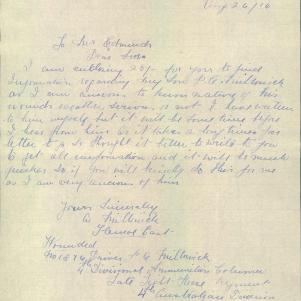 Aug 26/16
To Mrs Edmunds
Dear
I am enclosing 2/- for you to find
information regarding my Son P G
as I am anxious to know nature of his
wounds weather serious or not I have written
to him myself but it will be some time before
I hear from him as it takes a long time for
letter to go so thought it better to write to you
to get all information and it will be much
quicker so if you will kindly do this for me
as I am very anxious of him
Yours Sincerely
Wounded
Driver P G
4 Divisional Ammunition Column
Late Light Horse Regiment
4th Australian Division